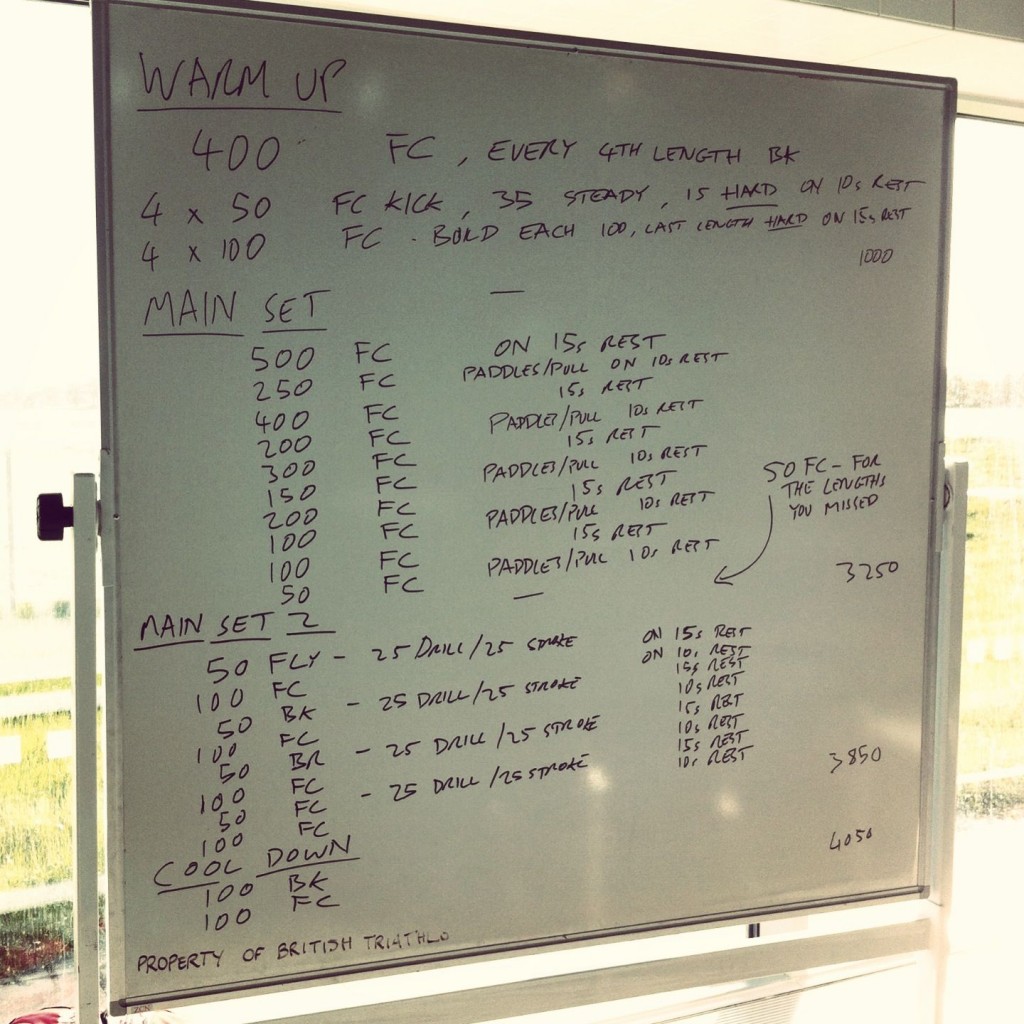 WARM UP
400 FC, EVERY 4TH LENGTH BK
4 x 50 FC KICK, 35 STEADY, 15 HARD ON 10s REST
4 x 100 FC - BUILD EACH 100, LAST LENGTH HARD ON 15s REST
1000
MAIN SET
500 FC ON 15s REST
250 FC PADDLES/PULL ON 10s REST
400 FC 15s REST
200 FC PADDLES/PULL 10s REST
300 FC 15s REST
150 FC PADDLES/PULL 10s REST
200 FC 15s REST
100 FC PADDLES/PULL 10s REST
100 FC 15s REST
50 FC PADDLES/PULL 10s REST
50 FC - FOR
THE LENGTHS
YOU MISSED
3250
MAIN SET 2
50 FLY - 25 DRILL/25 STROKE ON 15s REST
100 FC ON 10s REST
50 BK - 25 DRILL/25 STROKE 15s REST
100 FC 10s REST
50 BR - 25 DRILL/25 STROKE 15s REST
100 FC 10s REST
50 FC - 25 DRILL/25 STROKE 15s REST
100 FC 10s REST
3850
COOL DOWN
100 BK
100 FC
4050
PROPERTY OF BRITISH TRIATHLO